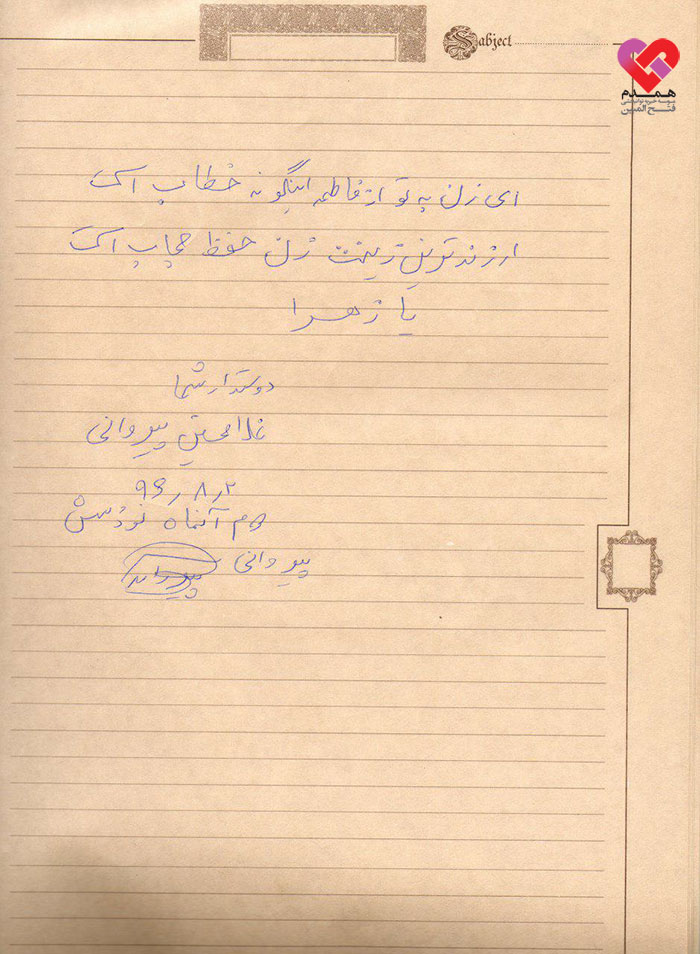 Subject
همدم
موسسه خیریه توانبخشی
فتح المبین
ای زن به تو از فاطمه اینگونه خطاب است
ارزنده‌ترین زینت زن حفظ حجاب است
یا زهرا
دوستدار شما
غلامحسین پیروانی
۹۶٫۸٫۲
پیروانی